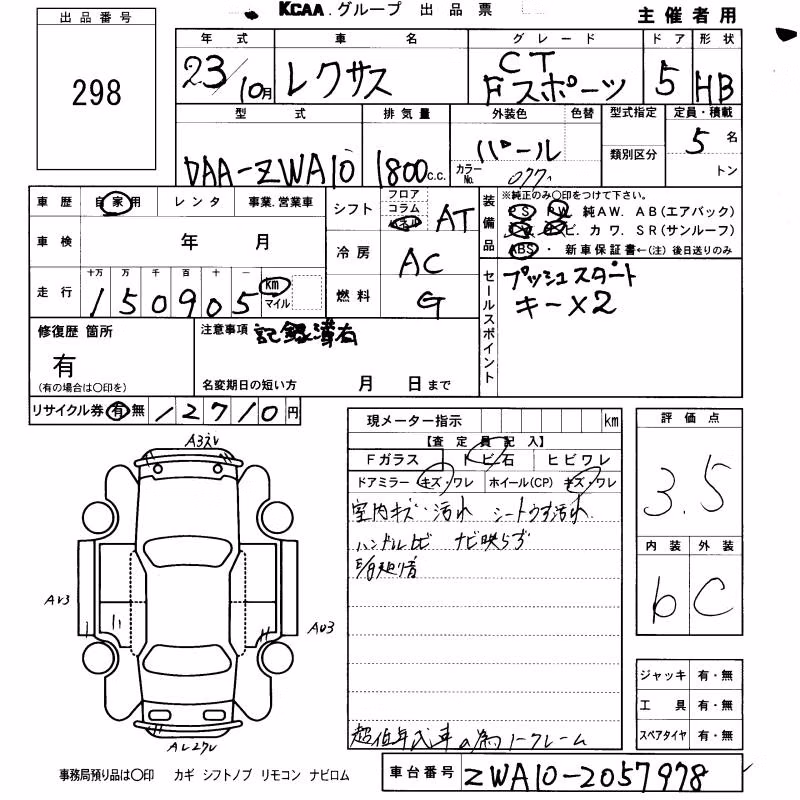 KCAA.グループ 出品票
主催者用
出品番号
298
年式 車名 グレード ドア 形状
23/10月 レクサス CT Fスポーツ 5 HB
型式 排気量 外装色 色替 型式指定 定員・積載
DAA-ZWA10 1800c.c. パール 類別区分 5名
カラーNo. 077 トン
車歴 自家用 レンタ 事業.営業車
車検 年 月
走行 十万 万 千 百 十 一
150905 km マイル
シフト フロア コラム AT
冷房 AC
燃料 G
装備品 ※純正のみ○印をつけて下さい。
PS PW 純AW. AB(エアバック)
ビ. カワ. SR(サンルーフ)
ABS・ 新車保証書←(注)後日送りのみ
セールスポイント
プッシュスタート
キー×2
修復歴 箇所
有
(有の場合は○印を)
注意事項 記録簿有
名変期日の短い方 月 日まで
リサイクル券 有 無 12710円
現メーター指示 km
【査定員記入】
Fガラス トビ石 ヒビワレ
ドアミラー キズ・ワレ ホイール(CP) キズ・ワレ
室内キズ・汚れ シートうす汚れ
ナビ映らず
評価点
3.5
内装 外装
b C
ジャッキ 有・無
工具 有・無
スペアタイヤ 有・無
AU3
AU3
超低年式車の為ノークレーム
事務局預り品は○印 カギ シフトノブ リモコン ナビロム
車台番号 ZWA10-2057978